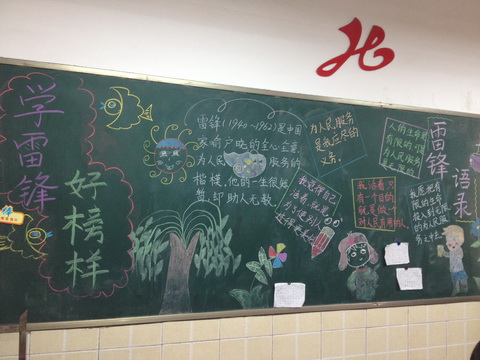 学雷锋
好榜样
雷锋(1940~1962)是中国
家俞户晓的全心全意
为人民服务的
楷模,他的一生很短
暂,却助人无数。
为人民服务
是我应尽的
义务。
人的生命是
有限的,可
为人民服务
是无限的。
雷锋
语录
我要把有
限的生命
投入到无限
的为人民服
务之中去。
我活着只
有一个目的,
就是做一个
对人民有用的人。
我觉得自己
活着,就是
为了使别人
过得更美好